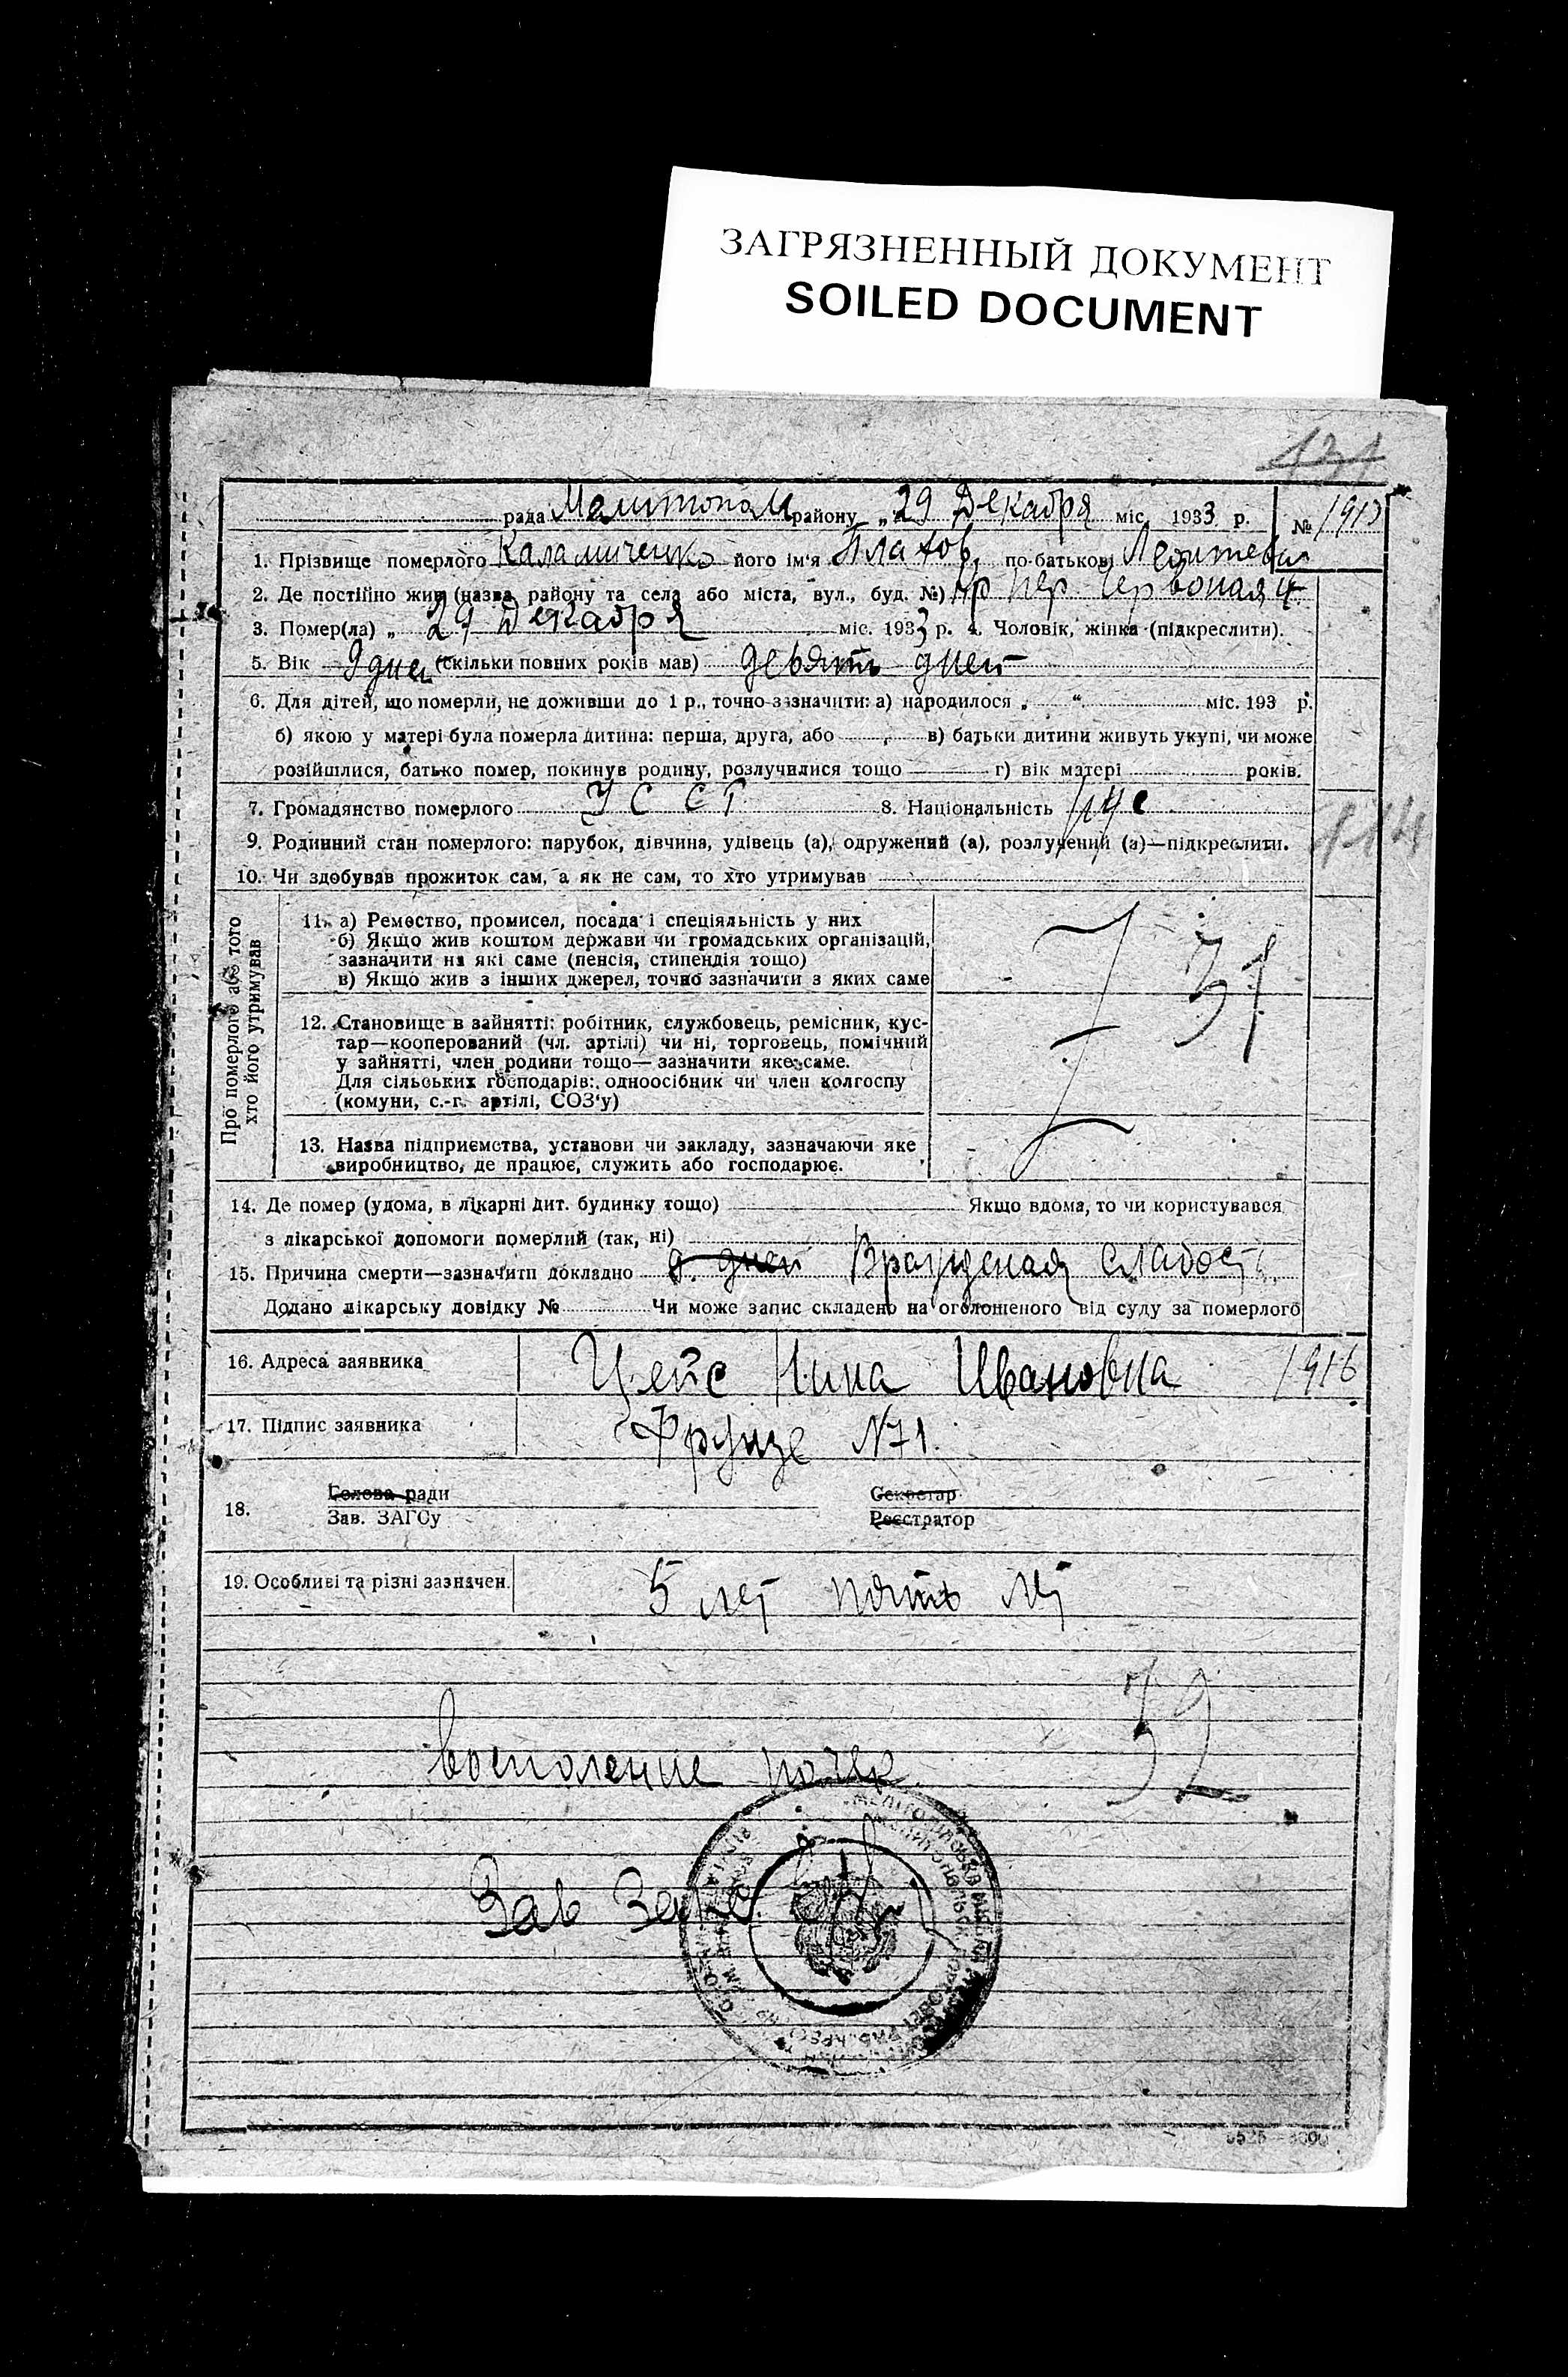 ЗАГРЯЗНЕННЫЙ ДОКУМЕНТ
SOILED DOCUMENT
131
рада Мелитопол району „29 Декабря міс. 1933 р. №
1. Прізвище померлого його ім'я по-батькові
2. Де постійно жив (назва району та села або міста, вул., буд. №) пер Червоная 4
3. Помер(ла) „ 29 Декабря міс. 1933 р. 4. Чоловік, жінка (підкреслити).
5. Вік 9 дней (скільки повних років мав) девять дней
6. Для дітей, що померли, не доживши до 1 р., точно зазначити: а) народилося „ “ міс. 193 р.
б) якою у матері була померла дитина: перша, друга, або в) батьки дитини живуть укупі, чи може
розійшлися, батько помер, покинув родину, розлучилися тощо г) вік матері років.
7. Громадянство померлого 8. Національність рус
9. Родинний стан померлого: парубок, дівчина, удівець (а), одружений (а), розлучений (а)—підкреслити.
10. Чи здобував прожиток сам, а як не сам, то хто утримував
Про померлого або того
хто його утримував
11. а) Ремество, промисел, посада і спеціяльність у них
б) Якщо жив коштом держави чи громадських організацій,
зазначити на які саме (пенсія, стипендія тощо)
в) Якщо жив з інших джерел, точно зазначити з яких саме
31
12. Становище в зайнятті: робітник, службовець, ремісник, кус-
тар—кооперований (чл. артілі) чи ні, торговець, помічний
у зайнятті, член родини тощо—зазначити яке саме.
Для сільських господарів: одноосібник чи член колгоспу
(комуни, с.-г. артілі, СОЗ'у)
13. Назва підприємства, установи чи закладу, зазначаючи яке
виробництво, де працює, служить або господарює.
14. Де помер (удома, в лікарні дит. будинку тощо) Якщо вдома, то чи користувався
з лікарської допомоги померлий (так, ні)
15. Причина смерти—зазначити докладно 9 дней Врожденая слабость
Додано лікарську довідку № Чи може запис складено на оголошеного від суду за померлого
16. Адреса заявника Цейс Нина Ивановна 1916
17. Підпис заявника Фрунзе №71.
18. Голова ради Секретар
Зав. ЗАГСу Реєстратор
19. Особливі та різні зазначен. 5 лет пять лет
52
воспаление почек
Зав Загс